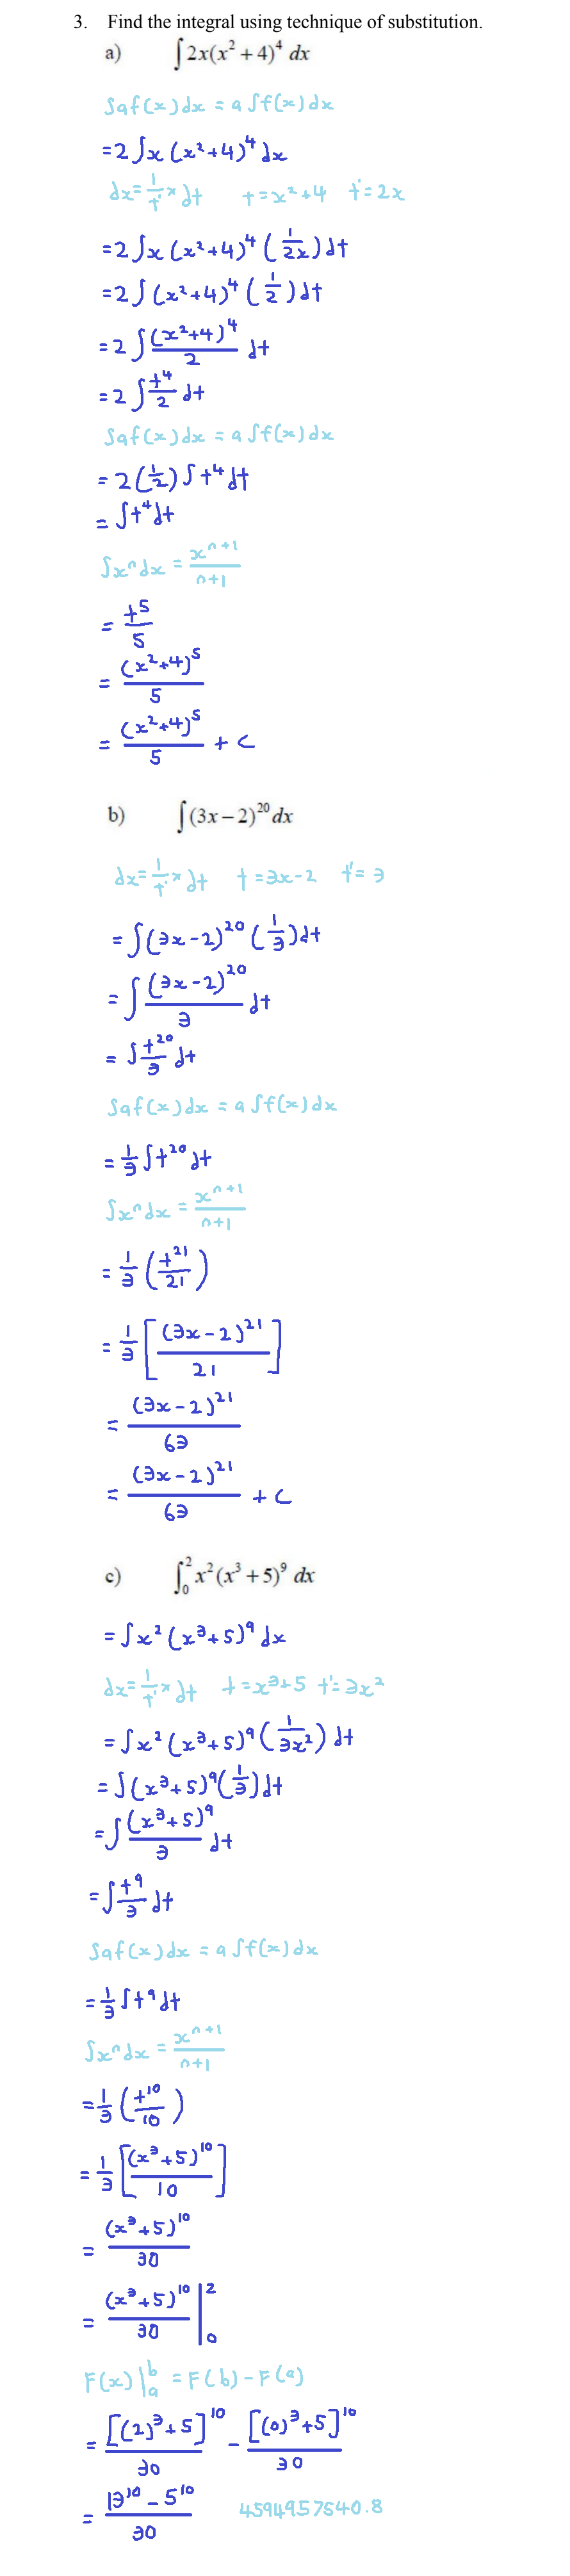 3. Find the integral using technique of substitution.
a) ∫2x(x² + 4)⁴ dx
∫af(x)dx = a∫f(x)dx
= 2∫x(x²+4)⁴dx
dx = 1/t' × dt t = x²+4 t' = 2x
= 2∫x(x²+4)⁴(1/2x)dt
= 2∫(x²+4)⁴(1/2)dt
= 2∫(x²+4)⁴/2 dt
= 2∫t⁴/2 dt
∫af(x)dx = a∫f(x)dx
= 2(1/2)∫t⁴dt
= ∫t⁴dt
∫xⁿdx = xⁿ⁺¹/n+1
= t⁵/5
= (x²+4)⁵/5
= (x²+4)⁵/5 + c
b) ∫(3x – 2)²⁰ dx
dx = 1/t' × dt t = 3x-2 t' = 3
= ∫(3x-2)²⁰(1/3)dt
= ∫(3x-2)²⁰/3 dt
= ∫t²⁰/3 dt
∫af(x)dx = a∫f(x)dx
= 1/3∫t²⁰dt
∫xⁿdx = xⁿ⁺¹/n+1
= 1/3(t²¹/21)
= 1/3[(3x-2)²¹/21]
= (3x-2)²¹/63
= (3x-2)²¹/63 + c
c) ∫₀² x²(x³ + 5)⁹ dx
= ∫x²(x³+5)⁹dx
dx = 1/t' × dt t = x³+5 t' = 3x²
= ∫x²(x³+5)⁹(1/3x²)dt
= ∫(x³+5)⁹(1/3)dt
= ∫(x³+5)⁹/3 dt
= ∫t⁹/3 dt
∫af(x)dx = a∫f(x)dx
= 1/3∫t⁹dt
∫xⁿdx = xⁿ⁺¹/n+1
= 1/3(t¹⁰/10)
= 1/3[(x³+5)¹⁰/10]
= (x³+5)¹⁰/30
= (x³+5)¹⁰/30 |₀²
F(x)|ₐᵇ = F(b)-F(a)
= [(2)³+5]¹⁰/30 - [(0)³+5]¹⁰/30
= 13¹⁰-5¹⁰/30 4594957640.8